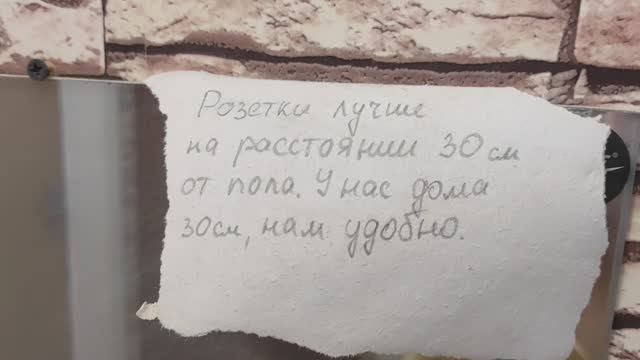 Розетки лучше
на расстоянии 30 см
от пола. У нас дома
30см, нам удобно.